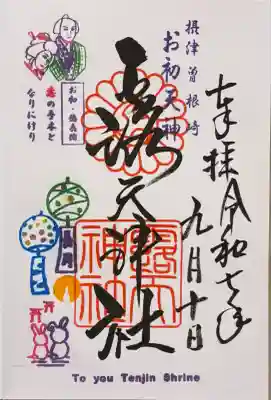 奉拝 令和七年
九月十日
摂津曽根崎
お初天神
露天神社
お初・徳兵衛
恋の手本と
なりにけり
露天
神社
To you Tenjin Shrine